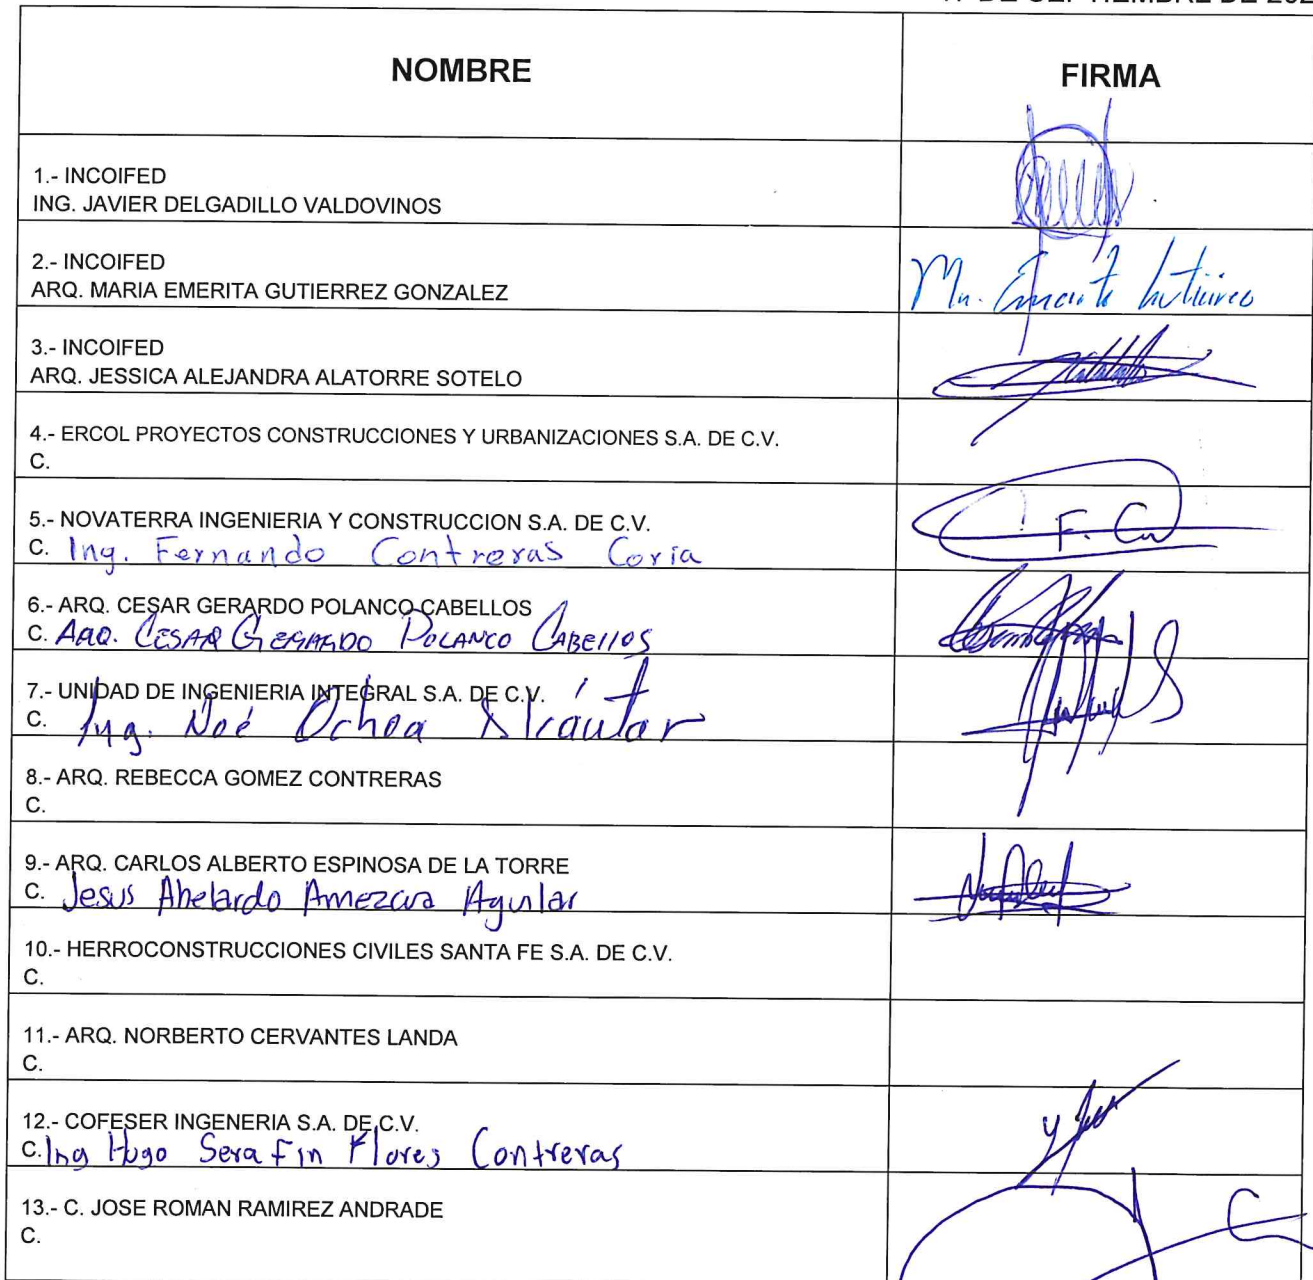 DE SEPTIEMBRE DE 202
NOMBRE
FIRMA
1.- INCOIFED
ING. JAVIER DELGADILLO VALDOVINOS
2.- INCOIFED
ARQ. MARIA EMERITA GUTIERREZ GONZALEZ
Ma. Emerita Gutiérrez
3.- INCOIFED
ARQ. JESSICA ALEJANDRA ALATORRE SOTELO
4.- ERCOL PROYECTOS CONSTRUCCIONES Y URBANIZACIONES S.A. DE C.V.
C.
5.- NOVATERRA INGENIERIA Y CONSTRUCCION S.A. DE C.V.
C. Ing. Fernando Contreras Coria
F. Co
6.- ARQ. CESAR GERARDO POLANCO CABELLOS
C. ARQ. CESAR GERARDO POLANCO CABELLOS
7.- UNIDAD DE INGENIERIA INTEGRAL S.A. DE C.V.
C. Ing. Noé Ochoa Alcántar
8.- ARQ. REBECCA GOMEZ CONTRERAS
C.
9.- ARQ. CARLOS ALBERTO ESPINOSA DE LA TORRE
C. Jesus Abelardo Amezcua Aguilar
10.- HERROCONSTRUCCIONES CIVILES SANTA FE S.A. DE C.V.
C.
11.- ARQ. NORBERTO CERVANTES LANDA
C.
12.- COFESER INGENERIA S.A. DE C.V.
C. Ing Hugo Serafin Flores Contreras
13.- C. JOSE ROMAN RAMIREZ ANDRADE
C.